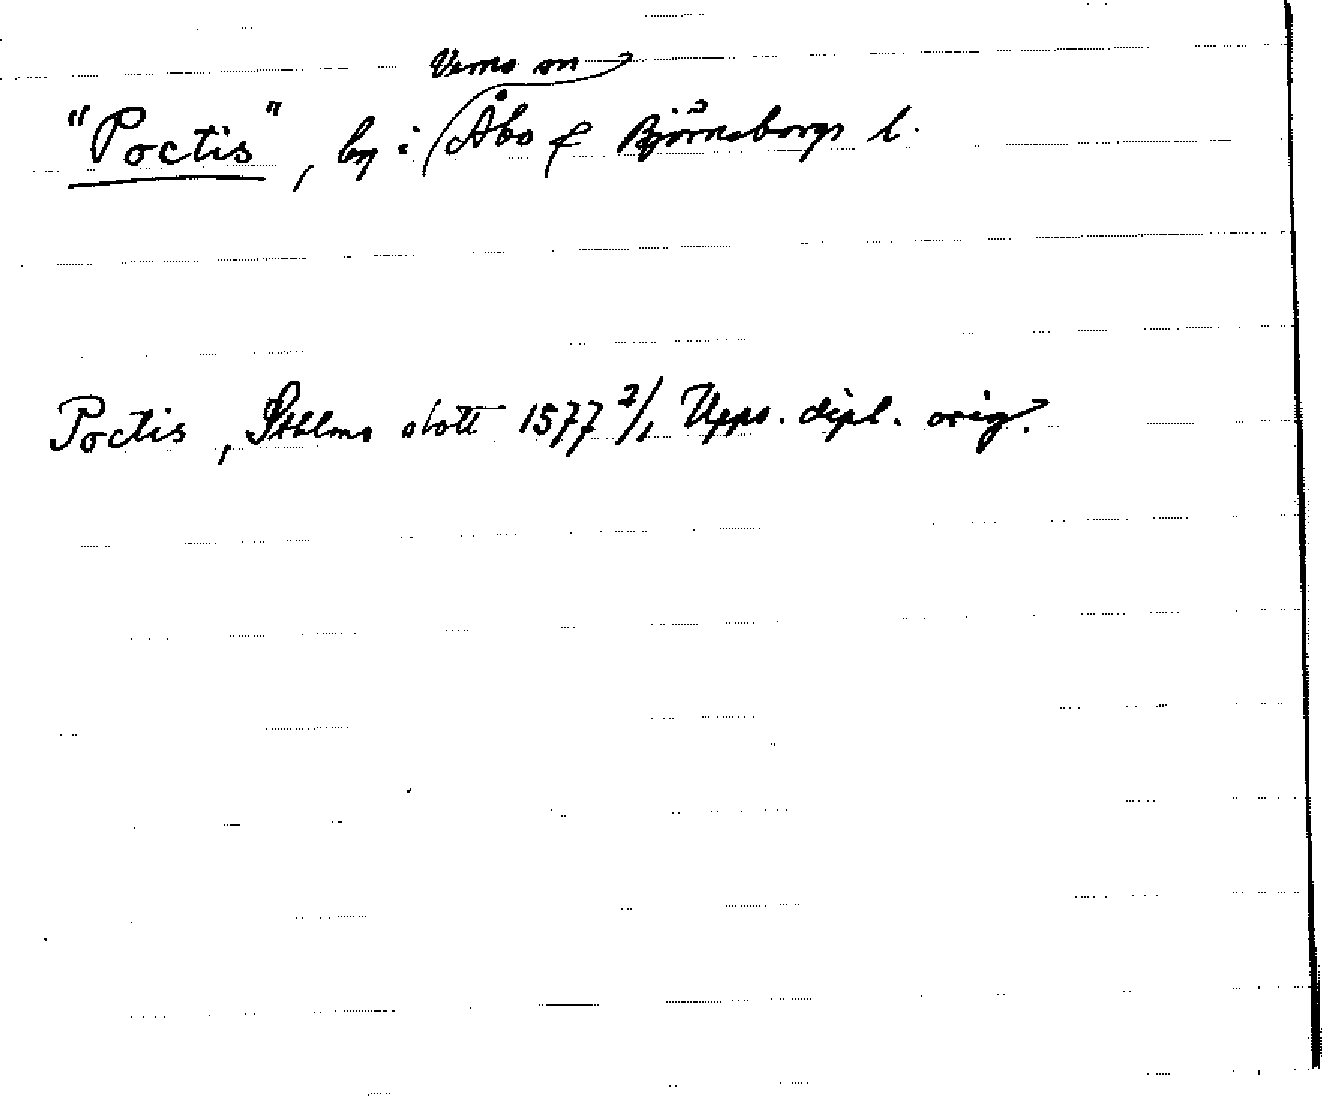 Vemo sn
"Poctis", by i Åbo & Björneborgs l.
Poctis, Sthlms slott 1577 2/1 Upps. dipl. orig.